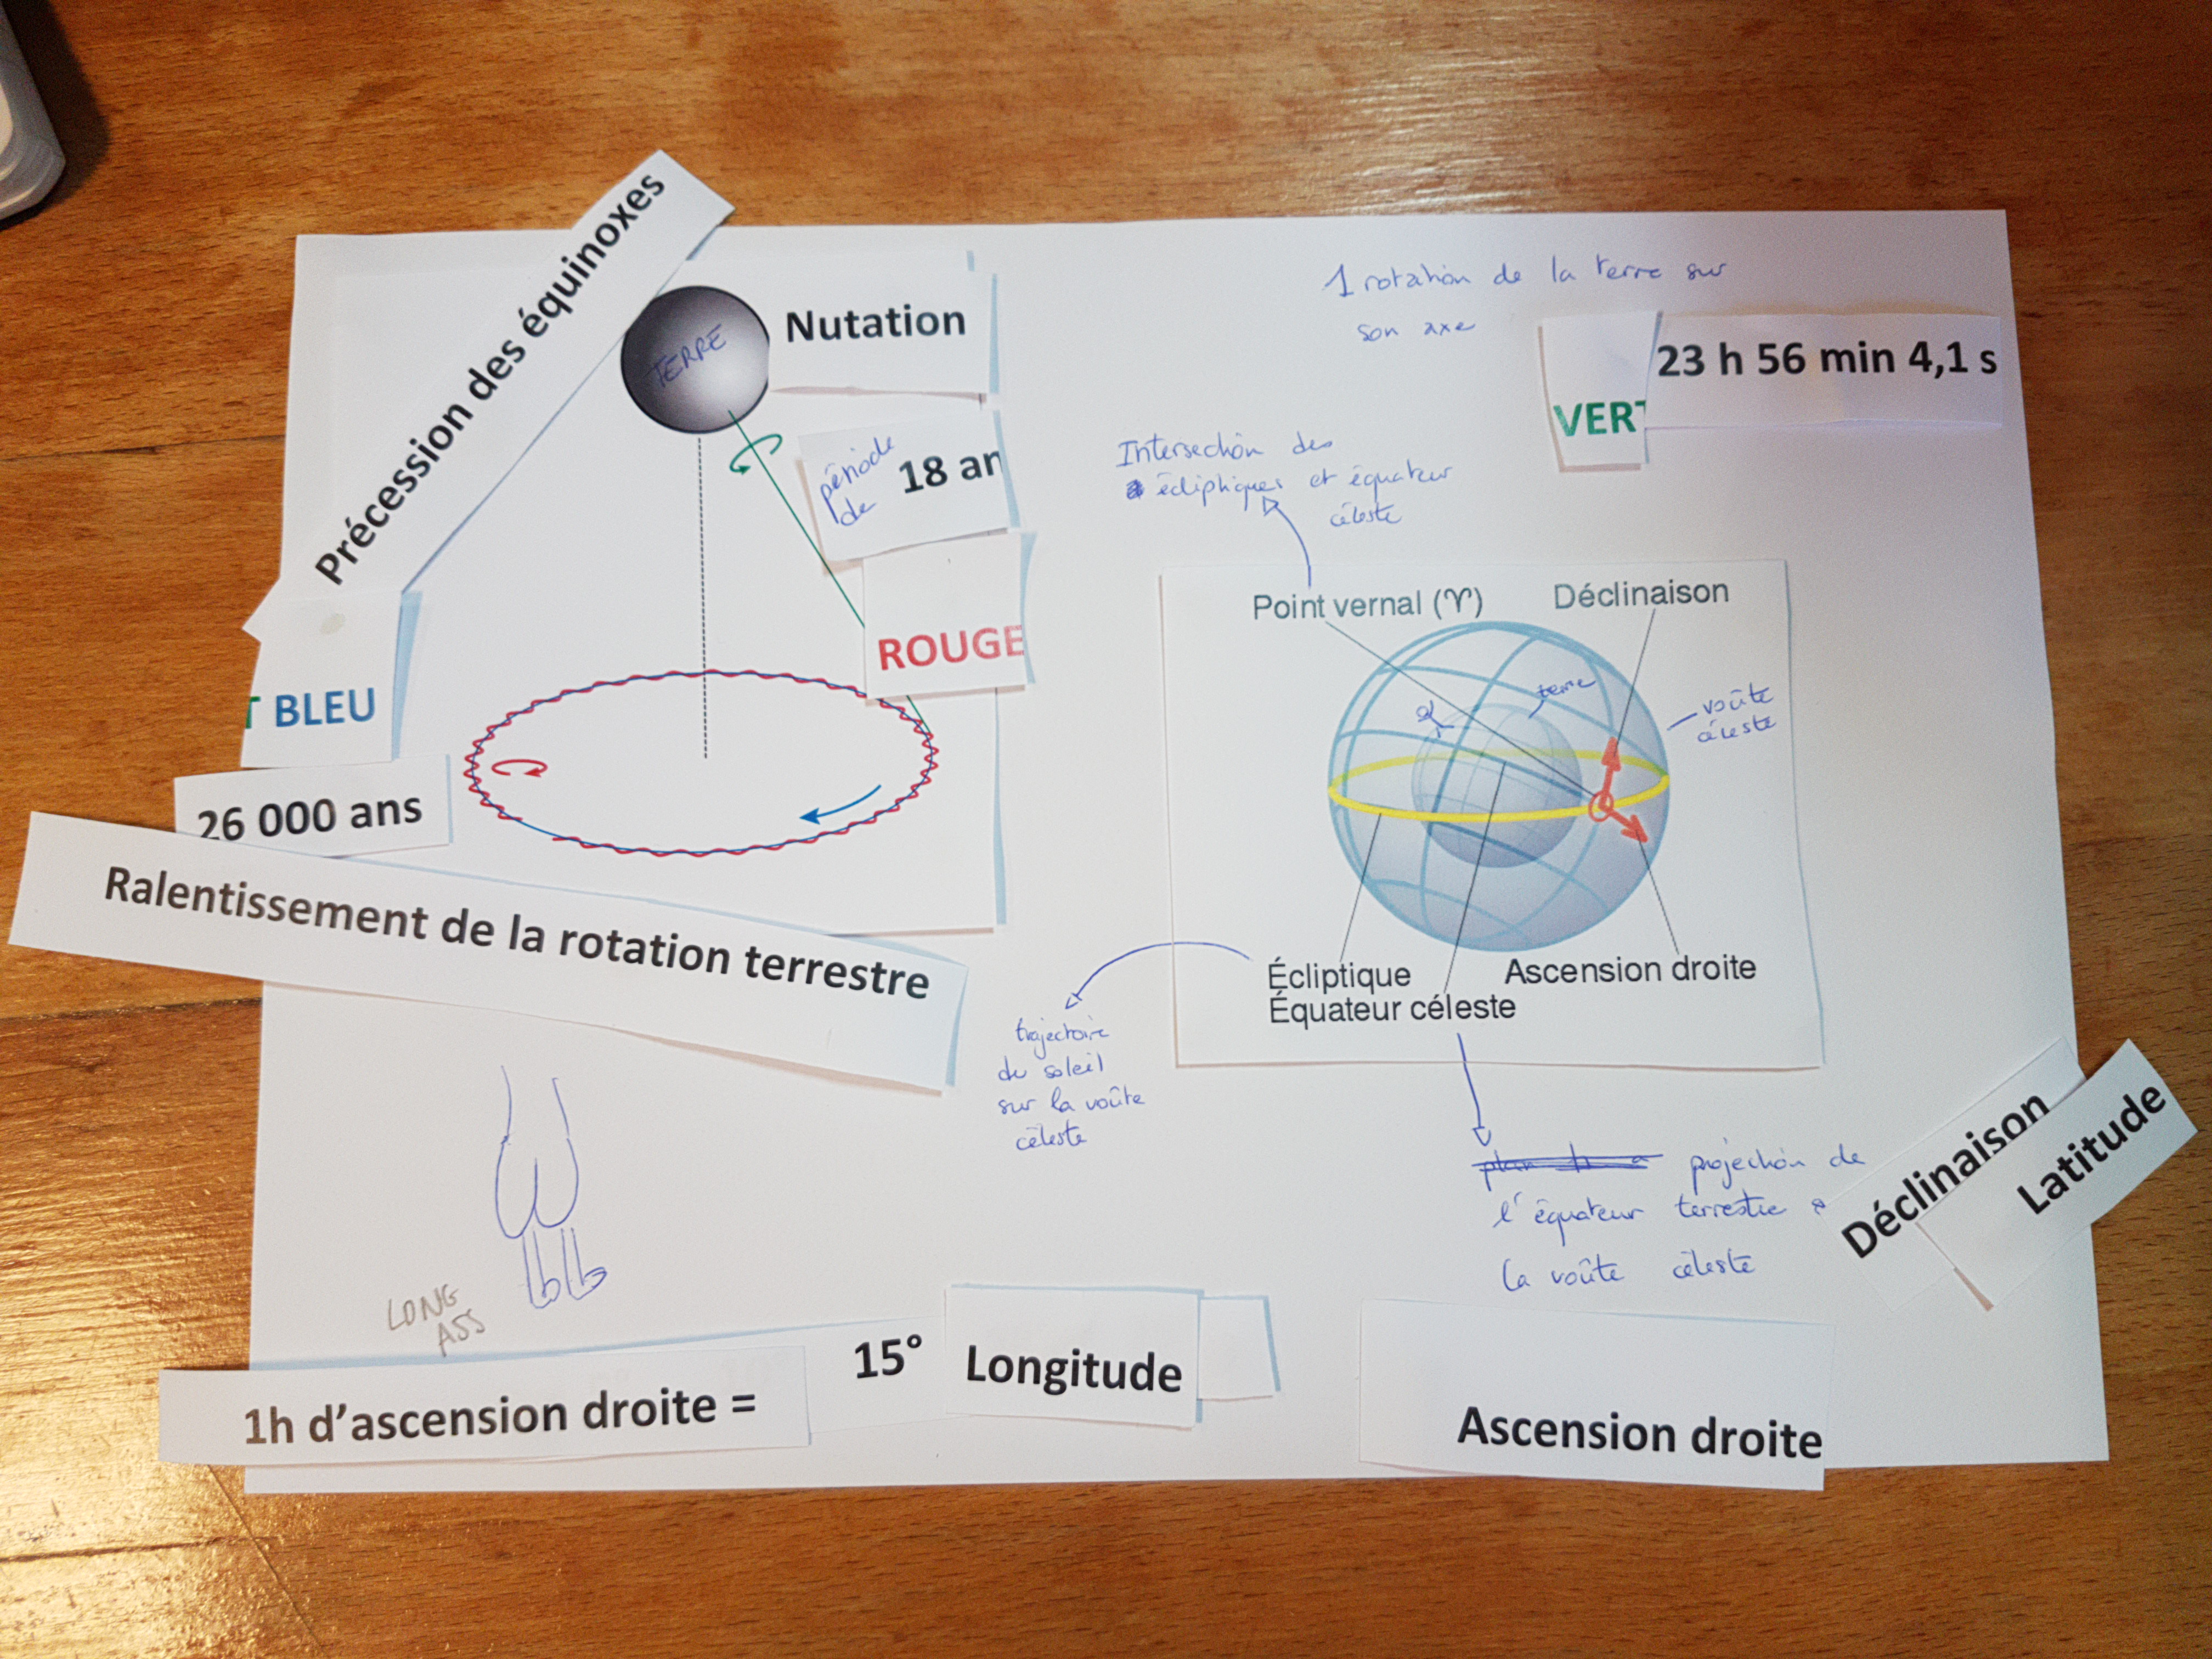 Précession des équinoxes
TERRE
Nutation
période
de
18 an
ROUGE
T BLEU
26 000 ans
Ralentissement de la rotation terrestre
1 rotation de la terre sur
son axe
VERT
23 h 56 min 4,1 s
Intersection des
écliptiques et équateur
céleste
Point vernal (♈)
Déclinaison
terre
voûte
céleste
Écliptique
Ascension droite
Équateur céleste
trajectoire
du soleil
sur la voûte
céleste
projection de
l'équateur terrestre
la voûte céleste
Déclinaison
Latitude
LONG
ASS
1h d'ascension droite =
15°
Longitude
Ascension droite